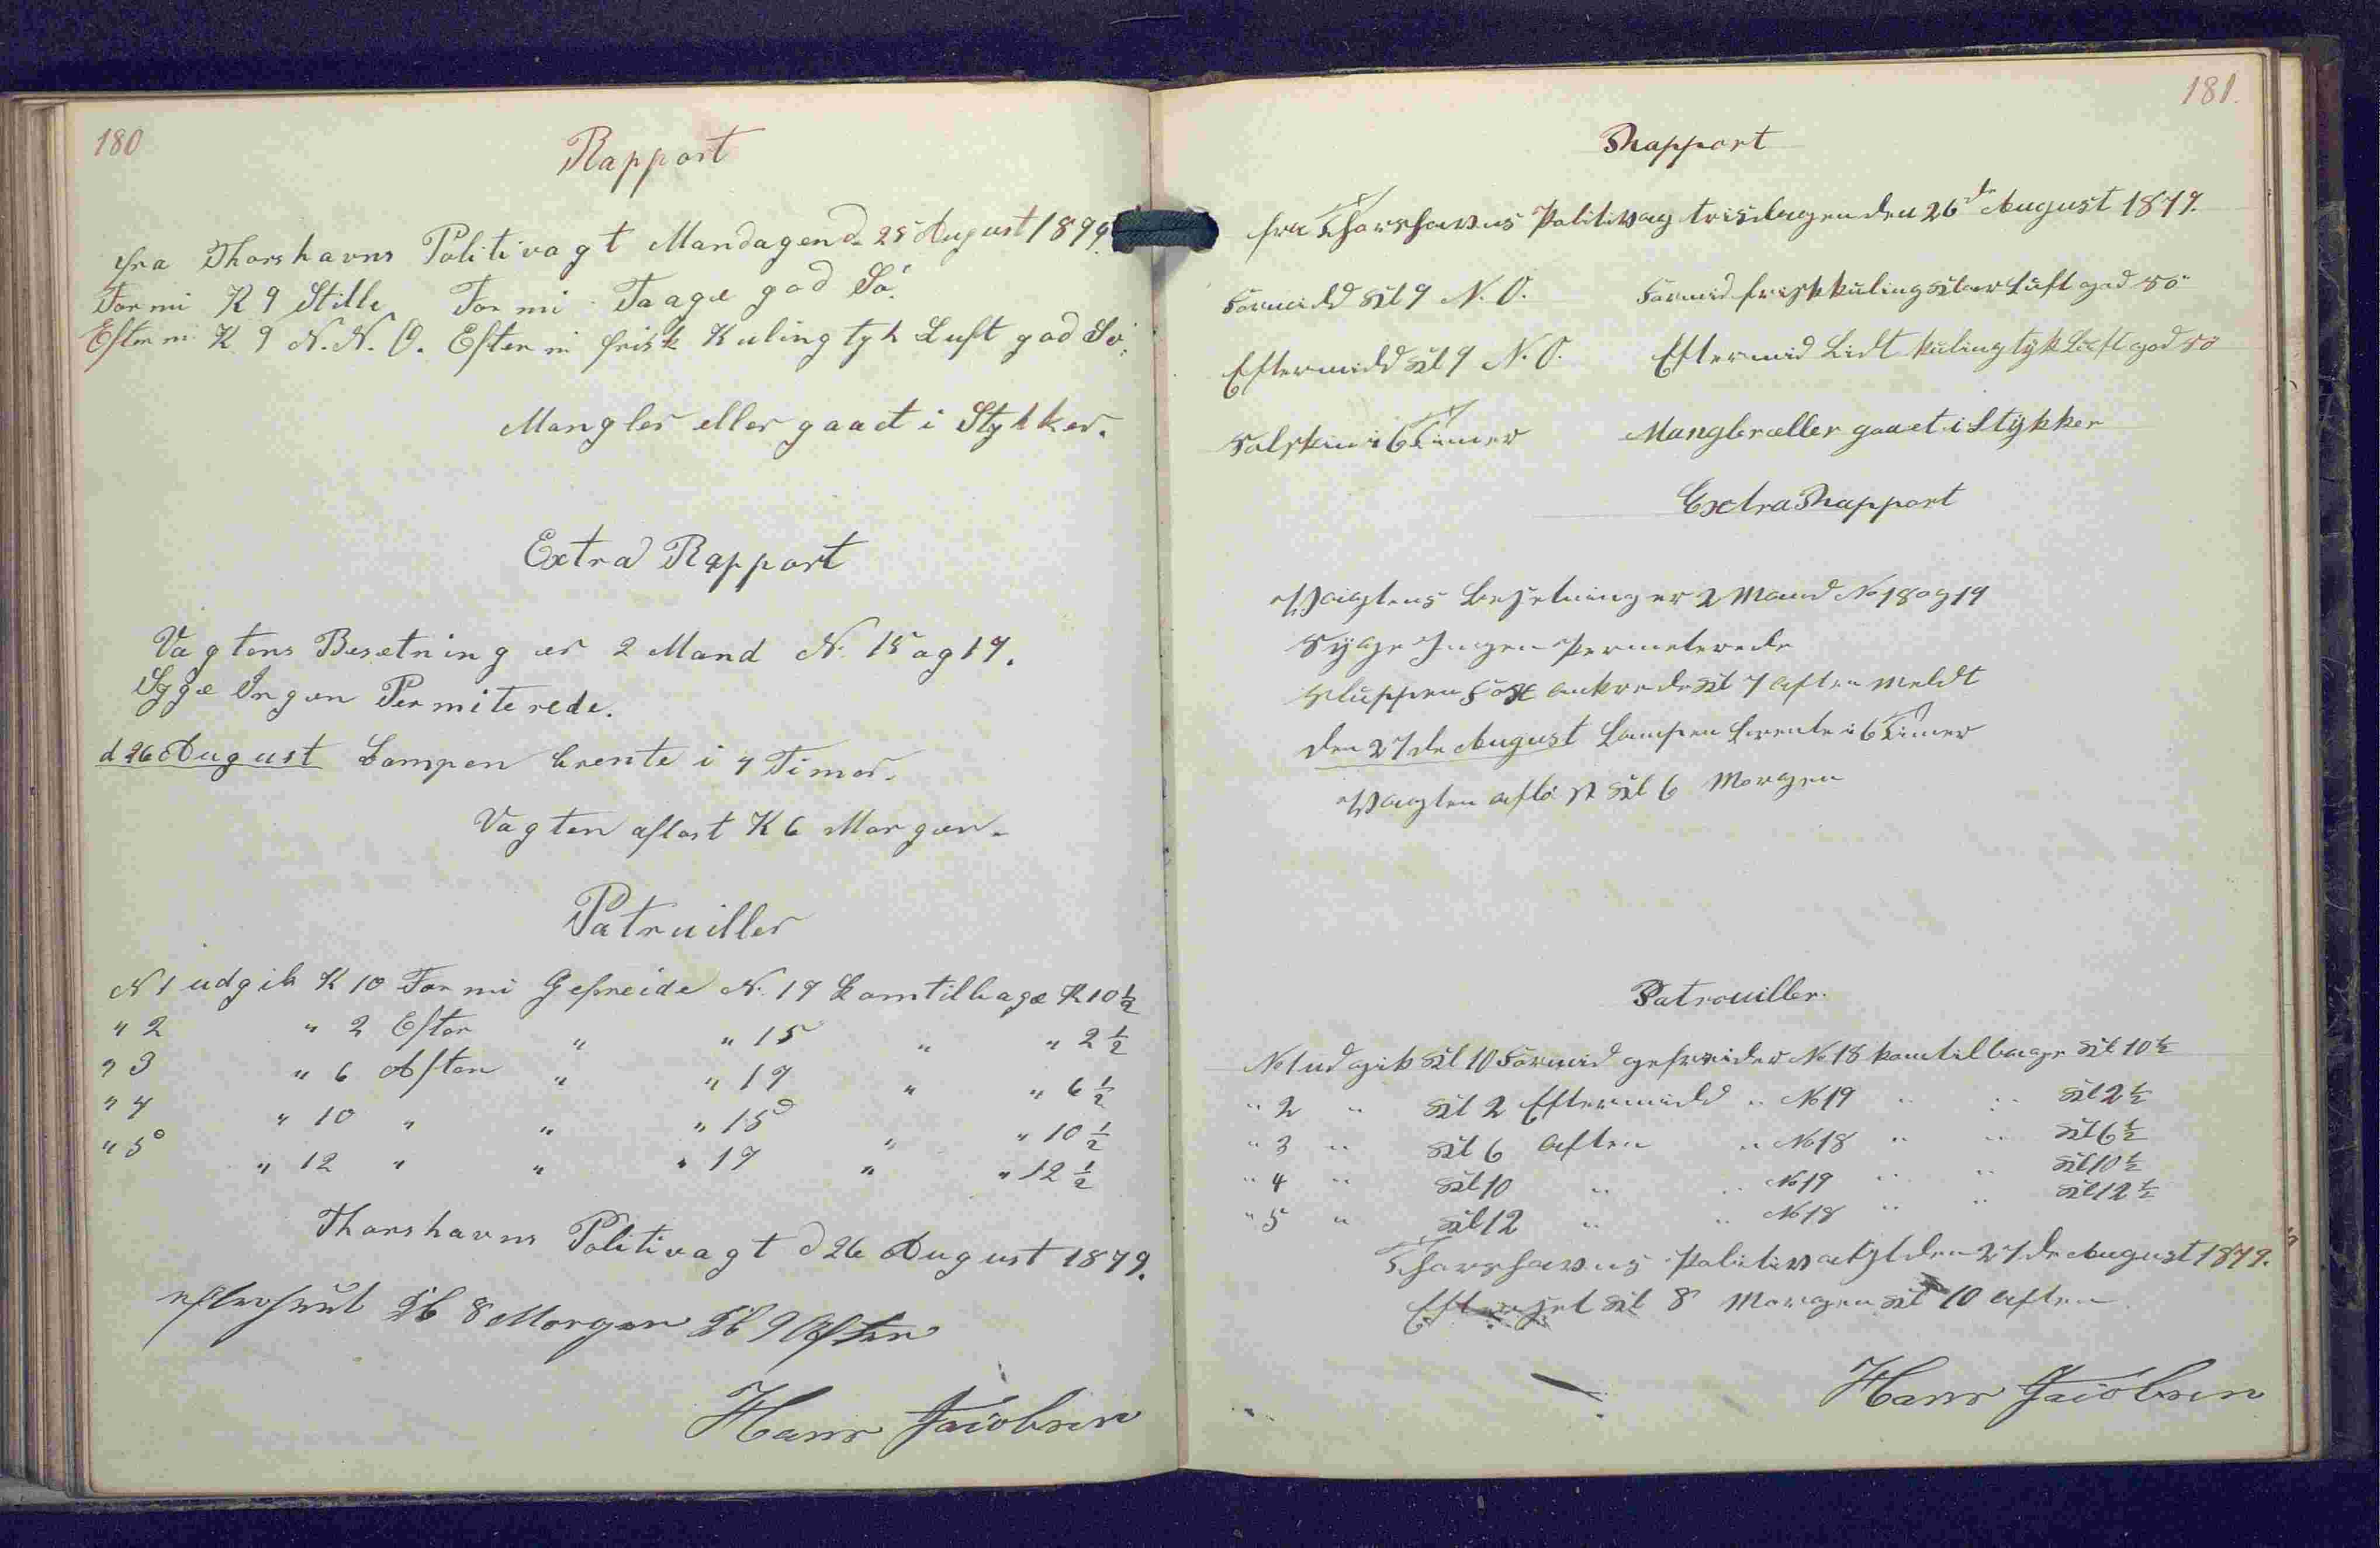 180
Rapport
fra Thorshavns Politivagt Mandagen d. 25 August 1879.
Formi K 9 Stille Formi Taage god Sö.
Efterm K 9 N.N.O. Efterm frisk Kuling tyk Luft god Sö.
Mangler eller gaaet i Stykker.
Extra Rapport
Vagtens Besætning er 2 Mand N. 15 og 19.
Syge Ingen Permiterede.
d 26 August Lampen brente i 7 Timer.
Vagten aflöst K 6 Morgen.
Patruiller
N 1 udgik K 10 Formi Gefreide N. 19 komtilbage K 10 ½
" 2 " 2 Efter " " 15 " " 2 ½
" 3 " 6 Aften " " 19 " " 6 ½
" 4 " 10 " " " 15 " " 10 ½
" 5 " 12 " " " 19 " " 12 ½
Thorshavns Politivagt d 26 August 1879.
efterseet Kl 8 Morgen Kl 9 Aften
Hans Jacobsen
181.
Rapport
fra Thorshavns Politivag tirsdagen den 26de August 1879.
Formidd Kl 9 N.O. Formid frisk kuling klar Luft god sö
Eftermidd Kl 9 N.O. Eftermid Lidt kuling tyk Luft god sö
Solskin i 6 Timer Mangler eller gaaet i Stykker
Extra Rapport
Vagtens besetning er 2 Mand No 18 og 19
Syge Ingen Permeterede
Sluppen ankrede Kl 7 aften Meldt
den 27de August Lampen brente i 6 Timer
Vagten aflöst Kl 6 Morgen
Patrouiller.
No 1 udgik Kl 10 Formid gefreider No 18 komtilbage Kl 10 ½
" 2 " Kl 2 Eftermidd " No 19 " " Kl 2 ½
" 3 " Kl 6 Aften " No 18 " " Kl 6 ½
" 4 " Kl 10 " " No 19 " " Kl 10 ½
" 5 " Kl 12 " " No 18 " " Kl 12 ½
Thorshavns Politivagt den 27de August 1879.
Efterset Kl 8 Morgen Kl 10 aften
Hans Jacobsen